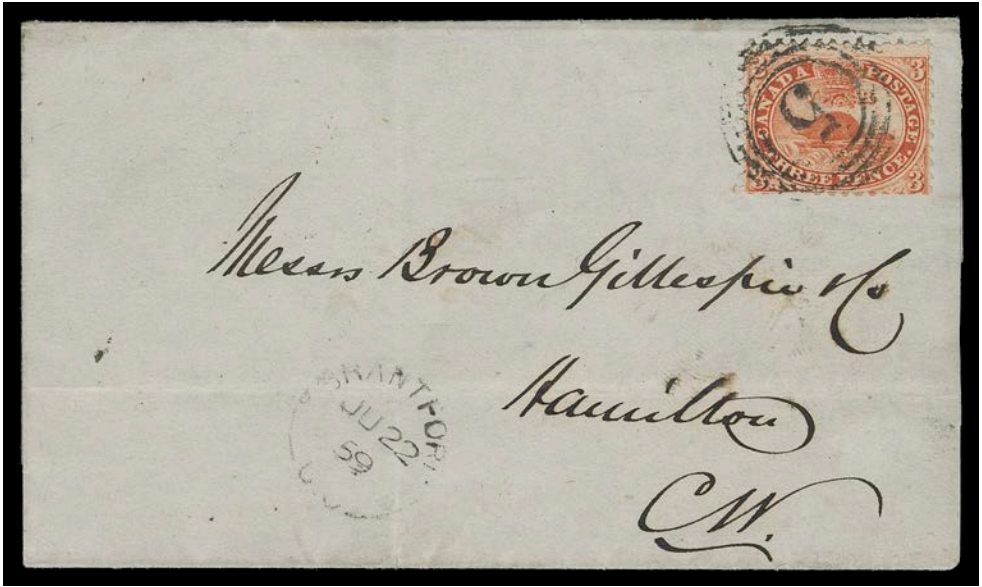 3 3
CANADA POSTAGE
5
THREE PENCE.
3
Messrs Brown Gillespie & Co
Hamilton
C.W.
BRANTFOR
JU 22
59